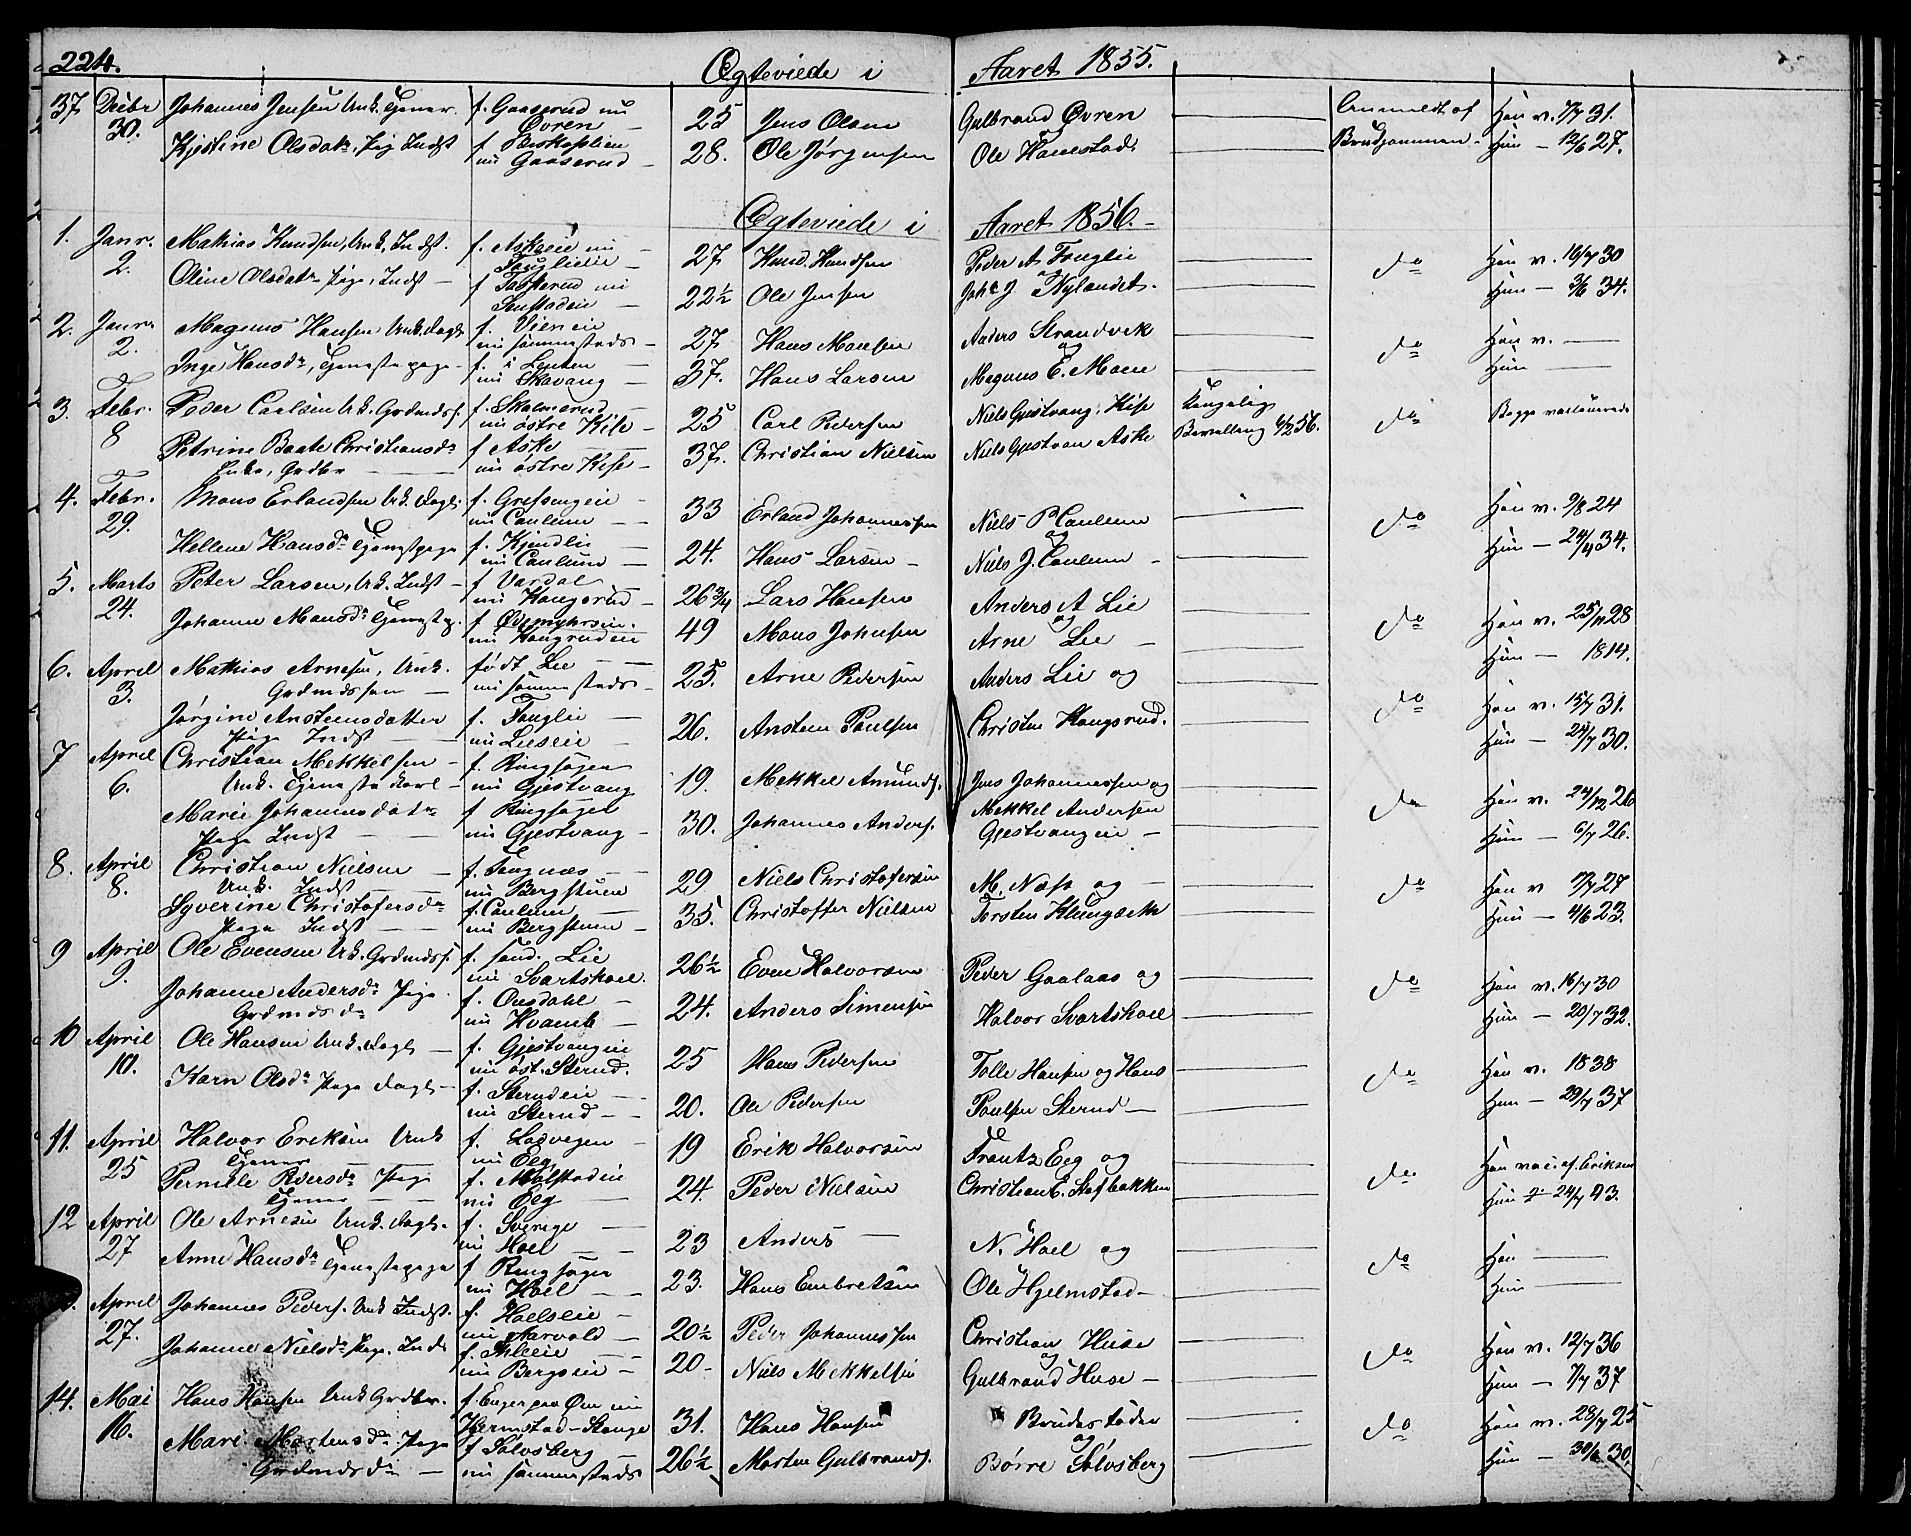 224.
Ægteviede i Aaret 1855.
37 Decbr 30. Johannes Jensen Unk. Tjener. f. Gaaserud nu Øvren 25 Jens Olsen Gulbrand Øvren Anmeldt af Han v. 7/7 31.
Kjistine Olsdatr, Pig. Indst f. Biskoplien nu Gaaserud 28. Ole Jørgensen Ole Hanestad Brudgommen Hun - 12/6 27.
Ægteviede i Aaret 1856.
1. Janr. 2. Mathias Knudsen, Unk. Indst. f. Askeeie nu 27 Knud Knudsen Peder A. do Han v. 16/7 30
Oline Olsdatr Pige, Indst f. 22½ Ole Jensen og Johs J Nylændet. Hun - 3/6 34.
2. Janr 2. Magnus Hansen Unk. Dagl. f. Vieneie nu sammesteds 27 Hans Monsen Anders Strandvek og do Han v.
Inge Hansdr, Tjenestepige f. i Lenken nu Skavang 37. Hans Larsen Magnus E. Moen Hun
3. Febr. 8 Peder Carlsen Unk. Grdmdss. f. Skolmerud nu østre Kise 25 Carl Pedersen Niels Gjestvang, Kise Kongelig do Begge
Petrine Baate Christiansdr Enke, Grdbr f. Aske nu østre Kise 37. Christian Nielsen Niels Gjestvan Aske Bevilling 6/2 56.
4. Febr. 29. Mons Erlandsen Unk. Dagl. f. Grefsengeie nu Caulum 33 Erland Johannessen Niels P Caulum og do Han v. 9/8 24
Hellene Hansdr Tjenestpige f. Kjendlie nu Caulum 24. Hans Larsen Niels J. Caulum Hun - 24/4 34.
5. Marts 24. Peter Larsen, Unk. Indst f. Vardal nu Haugsrud 26¾ Lars Hansen Anders A Lie og do Han v. 25/11 28
Johanne Monsdr Tjenestep. f. nu Haugsrudeie 49 Mons Johnsen Arne Lie Hun - 1814.
6. April 3. Mathias Arnesen, Unk. Grdmdssøn født Lie nu sammesteds 25. Arne Pedersen Anders Lie og do Han v. 15/7 31.
Jørgine Anstensdatter Pige Indst f. nu Lieseie 26. Ansten Paulsen Christen Haugsrud. Hun - 24/7 30.
7 April 6. Christian Mekkelsen Unk. Tjenestekarl f. Ringsager nu Gjestvang 19. Mekkel Amunds. Jens Johannessen og do Han v. 24/12 26
Marie Johannesdatr Pige Indst f. Ringsager nu Gjestvang 30. Johannes Anders. Mekkel Andersen Gjestvangeie Hun - 6/7 26.
8. April 8. Christian Nielsen Unk. Indst f. Tangnæs nu Bergstuen 29 Niels Christofersen M. Næss og do Han v 7/7 27
Syverine Christofersdr Pige Indst f. Caulum nu Bergstuen 35. Christoffer Nielsen Torsten Hun - 4/6 23.
9 April 9. Ole Evensen Unk. Grdmdss. f. sønd. Lie nu Svartskoel. 26½ Even Halvorsen Peder Gaalaas og do Han v. 16/7 30
Johanne Andersdr Pige Grdmdsdr f. Onsdahl nu Kvamb 24. Anders Simensen Halvor Svartskoel Hun - 20/7 32.
10 April 10. Ole Hansen Unk. Dagl. f. Gjestvangeie nu øst. Sterud. 25 Hans Pedersen Tolle Hansen og Hans do Han v. 1838
Karn Olsdr Pige Dagl f. Sterudeie nu Sterud 20. Ole Pedersen Poulsen Sterud Hun - 29/7 37
11. April 25 Halvor Eriksen Unk Tjener f. Ladvegen nu Eeg 19 Erik Halvorsen Frantz Eeg og do
Pernille Pedersdr Pige Tjener f. Molstadeie nu Eeg 24. Peder Nielsen Christian C. Stafbakken Hun 24/7 93.
12 April 27 Ole Arnesen Unk. Dagl. f. Sverige nu Hoel 23 Anders N. Hoel og do Han
Anne Hansdr Tjenestepige f Ringsager nu Hoel 23. Hans Embretsen Ole Hjelmstad Hun
April 27. Johannes Peders. Unk Indst. f. Hoelseie nu Aarvold 20½ Peder Johannessen Christian Huse og do Han v. 12/7 36
Johanne Nielsdr Pige, Ind. f. nu Bergseie 20 Niels Mekkelsen Gulbrand Huse Hun - 7/7 37
14. Mai 16. Hans Hansen Unk Grdbr. f. Enger paa Øen nu Hjermstad-Stange 31. Hans Hansen Brudestøden og do Han v. 28/7 25
Mari Martensdr Pige Grdmdsdr f. Sølvsberg nu sammesteds 26½ Morten Gulbrands. Børre Sølvsberg Hun - 30/6 30.